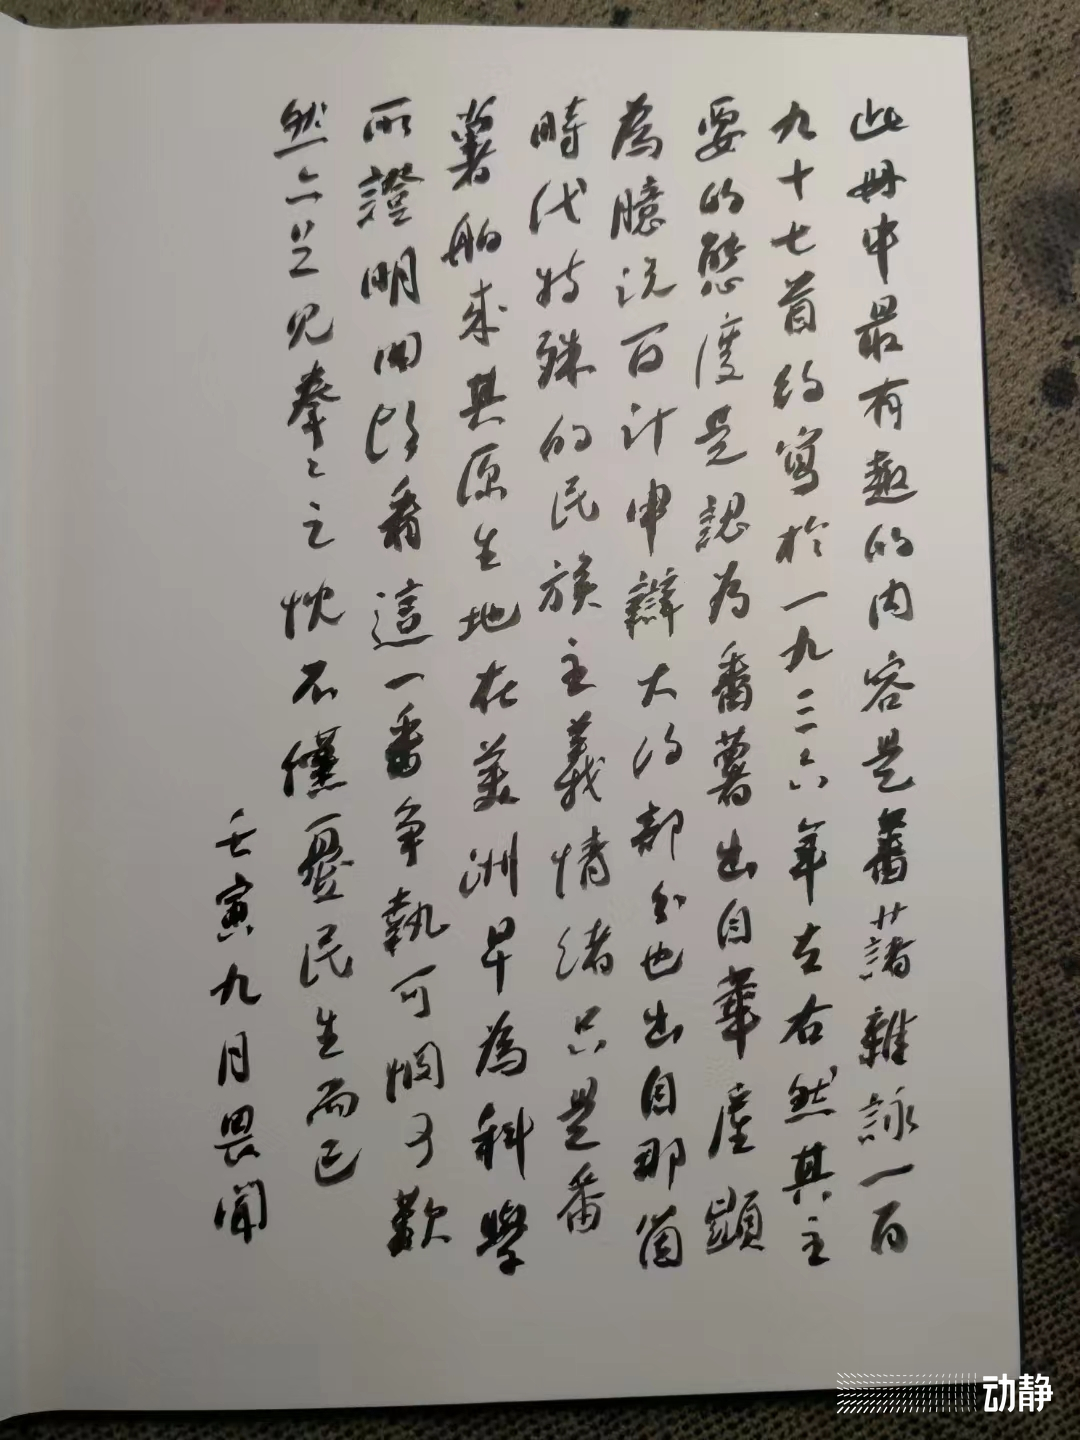 此冊中最有趣的内容是蕃藷雜詠一百
九十七首約寫於一九三六年左右然其主
要的態度是認為番薯出自華產顯
為臆説百計申辯大約部分也出自那箇
時代特殊的民族主義情緒只是番
薯舶来其原生地在美洲早為科學
所證明回頭看這一番争執可憫可歎
然亦足見拳〻之忱不僅憂民生而已
壬寅九月畏聞
动静